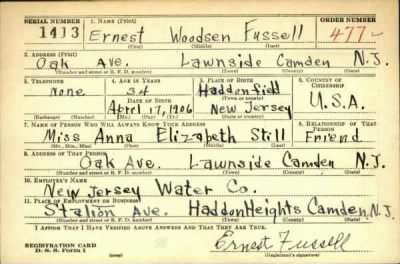 SERIAL NUMBER 1. NAME (Print) ORDER NUMBER
1413 Ernest Woodsen Fussell 477
(First) (Middle) (Last)
3. ADDRESS (Print)
Oak Ave. Lawnside Camden N.J.
(Number and street or R. F. D. number) (Town) (County) (State)
3. TELEPHONE 4. AGE IN YEARS 5. PLACE OF BIRTH 6. COUNTRY OF CITIZENSHIP
None 34 Haddonfield
DATE OF BIRTH (Town or county)
April 17, 1906 New Jersey U.S.A.
(Exchange) (Number) (Mo.) (Day) (Yr.) (State or country)
7. NAME OF PERSON WHO WILL ALWAYS KNOW YOUR ADDRESS 8. RELATIONSHIP OF THAT PERSON
Miss Anna Elizabeth Still Friend
(Mr., Mrs., Miss) (First) (Middle) (Last)
9. ADDRESS OF THAT PERSON
Oak Ave. Lawnside Camden N.J.
(Number and street or R. F. D. number) (Town) (County) (State)
10. EMPLOYER'S NAME
New Jersey Water Co.
11. PLACE OF EMPLOYMENT OR BUSINESS
Station Ave. Haddon Heights Camden N.J.
(Number and street or R. F. D. number) (Town) (County) (State)
I AFFIRM THAT I HAVE VERIFIED ABOVE ANSWERS AND THAT THEY ARE TRUE.
REGISTRATION CARD
D. S. S. Form 1
Ernest Fussell
(Registrant's signature)